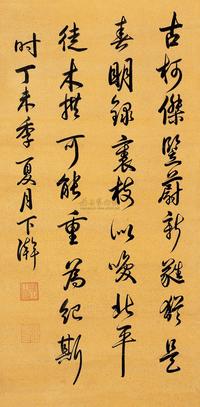 古柯傑竪蔚新蕤猶是
春明録裏枝似喚北平
徒木拱可能重為紀斯
时丁未季夏月下澣